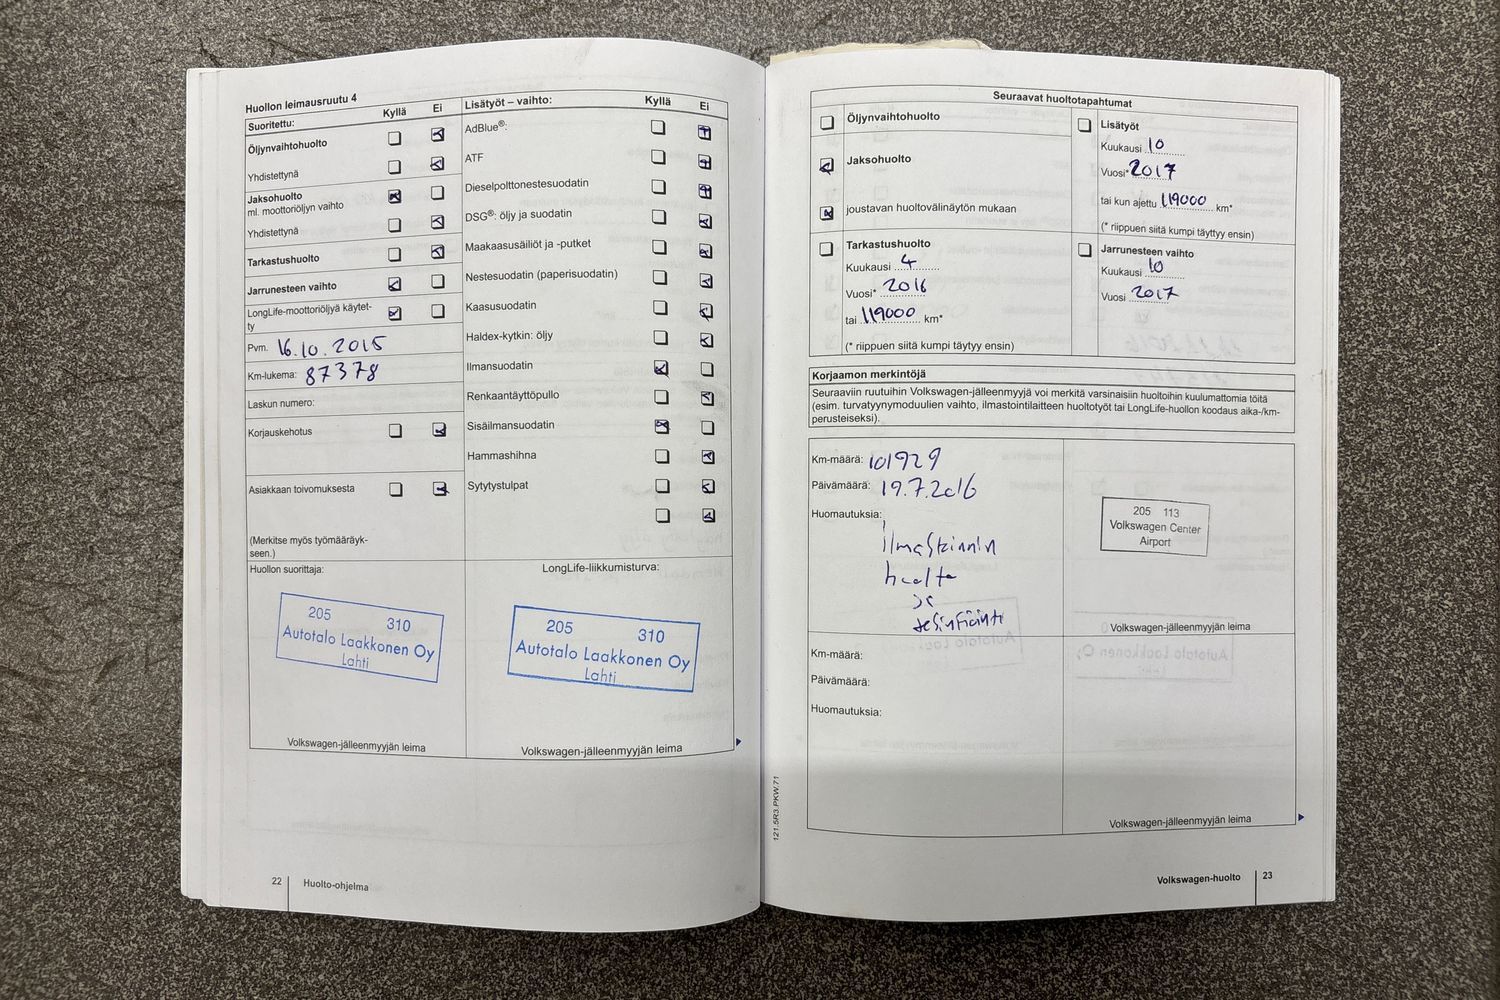 Huollon leimausruutu 4
Suoritettu: Kyllä Ei
Öljynvaihtohuolto
Yhdistettynä
Jaksohuolto
ml. moottoriöljyn vaihto
Yhdistettynä
Tarkastushuolto
Jarrunesteen vaihto
LongLife-moottoriöljyä käytet-
ty
Pvm. 16.10.2015
Km-lukema: 87378
Laskun numero:
Korjauskehotus
Asiakkaan toivomuksesta
(Merkitse myös työmääräyk-
seen.)
Lisätyöt – vaihto: Kyllä Ei
AdBlue®:
ATF
Dieselpolttonestesuodatin
DSG®: öljy ja suodatin
Maakaasusäiliöt ja -putket
Nestesuodatin (paperisuodatin)
Kaasusuodatin
Haldex-kytkin: öljy
Ilmansuodatin
Renkaantäyttöpullo
Sisäilmansuodatin
Hammashihna
Sytytystulpat
Huollon suorittaja:
205 310
Autotalo Laakkonen Oy
Lahti
Volkswagen-jälleenmyyjän leima
LongLife-liikkumisturva:
205 310
Autotalo Laakkonen Oy
Lahti
Volkswagen-jälleenmyyjän leima
22 Huolto-ohjelma
Seuraavat huoltotapahtumat
Öljynvaihtohuolto
Jaksohuolto
joustavan huoltovälinäytön mukaan
Lisätyöt
Kuukausi 10
Vuosi* 2017
tai kun ajettu 119000 km*
(* riippuen siitä kumpi täyttyy ensin)
Tarkastushuolto
Kuukausi 4
Vuosi* 2016
tai 119000 km*
(* riippuen siitä kumpi täytyy ensin)
Jarrunesteen vaihto
Kuukausi 10
Vuosi 2017
Korjaamon merkintöjä
Seuraaviin ruutuihin Volkswagen-jälleenmyyjä voi merkitä varsinaisiin huoltoihin kuulumattomia töitä
(esim. turvatyynymoduulien vaihto, ilmastointilaitteen huoltotyöt tai LongLife-huollon koodaus aika-/km-
perusteiseksi).
Km-määrä: 101929
Päivämäärä: 19.7.2016
Huomautuksia:
ilmastoinnin
huolto
ja
desinfiointi
205 113
Volkswagen Center
Airport
Volkswagen-jälleenmyyjän leima
Km-määrä:
Päivämäärä:
Huomautuksia:
Volkswagen-jälleenmyyjän leima
121.5R3.PKW.71
Volkswagen-huolto 23